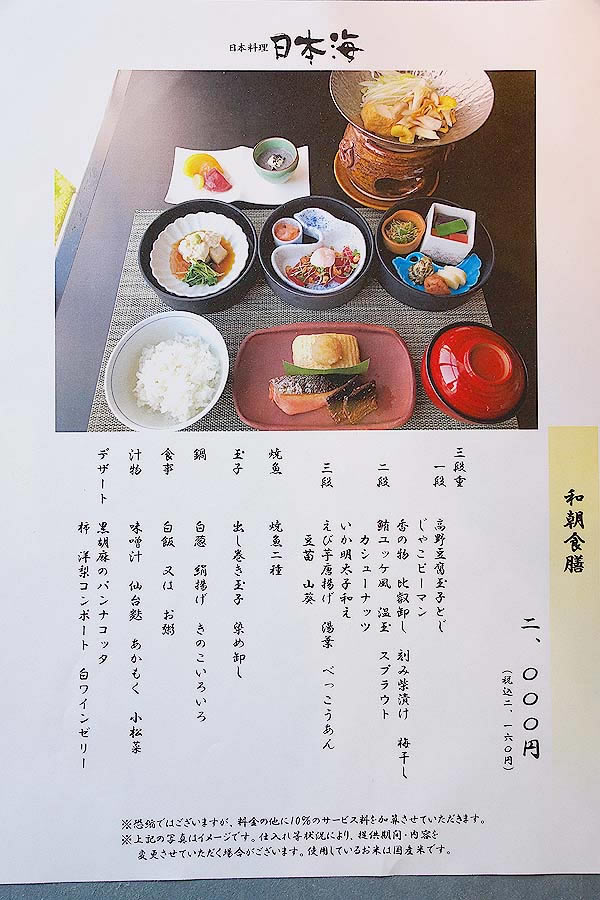 日本料理 日本海
和朝食膳
二、〇〇〇円
（税込二、一六〇円）
三段重
一段 高野豆腐玉子とじ
じゃこピーマン
香の物 比叡卸し 刻み柴漬け 梅干し
二段 鮪ユッケ風 温玉 スプラウト
カシューナッツ
いか明太子和え
三段 えび芋唐揚げ 湯葉 べっこうあん
豆苗 山葵
焼魚 焼魚二種
玉子 出し巻き玉子 染め卸し
鍋 白葱 絹揚げ きのこいろいろ
食事 白飯 又は お粥
汁物 味噌汁 仙台麩 あかもく 小松菜
デザート 黒胡麻のパンナコッタ
柿 洋梨コンポート 白ワインゼリー
※恐縮ではございますが、料金の他に10%のサービス料を加算させていただきます。
※上記の写真はイメージです。仕入れ等状況により、提供期間・内容を
変更させていただく場合がございます。使用しているお米は国産米です。